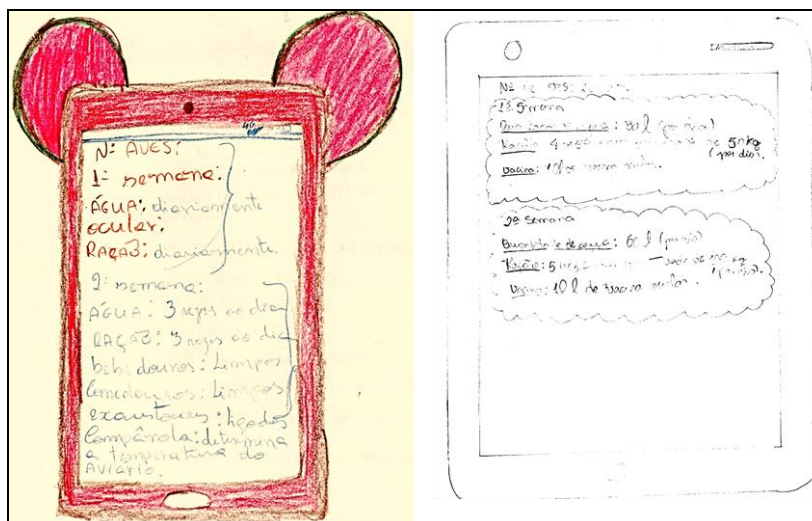 4G
Nº AVES:
1ª semana:
ÁGUA: diariamente
ocular:
RAÇÃO: diariamente.
2ª semana:
ÁGUA: 3 vezes ao dia
RAÇÃO: 3 vezes ao dia
bebedouros: Limpos
Comedouros: Limpos
exaustoures: ligados
Campânola: determina
a temperatura do
Aviário.
Nº de aves:
1ª Semana
: 30 l (por dia)
Ração: 4 de 50 kg
(por dia).
Vacina: 10 l de vacina ocular.
2ª Semana
Quantidade de água: 60 l (por dia)
Ração: 5 kg
(por dia).
Vacina: 10 l de vacina ocular.